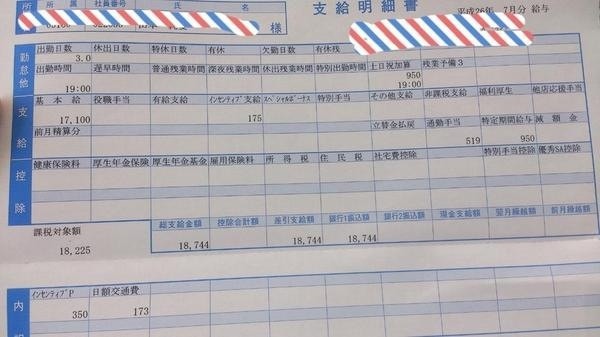 支給明細書
平成26年 7月分 給与
所属 社員番号 氏名 様
勤怠他
出勤日数 休出日数 特休日数 有休 欠勤日数 有休残
3.0
出勤時間 遅早時間 普通残業時間 深夜残業時間 休出残業時間 特別出勤時間 土日祝加算 残業予備3
950
19:00 19:00
支給
基本給 役職手当 有給支給 インセンティブ支給 スペシャルボーナス 特別手当 その他支給 非課税支給 福利厚生 他店応援手当
17,100 175
前月精算分 立替金払戻 通勤手当 特定期間給与 減額金
519 950
控除
健康保険料 厚生年金保険 厚生年金基金 雇用保険料 所得税 住民税 社宅費控除 特別手当控除 優秀SA控除
課税対象額 総支給金額 控除合計額 差引支給額 銀行1振込額 銀行2振込額 現金支給額 翌月繰越額 前月繰越額
18,225 18,744 18,744 18,744
内
インセンティブP 日額交通費
350 173